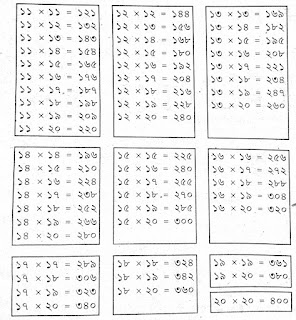 ১১ × ১১ = ১২১
১১ × ১২ = ১৩২
১১ × ১৩ = ১৪৩
১১ × ১৪ = ১৫৪
১১ × ১৫ = ১৬৫
১১ × ১৬ = ১৭৬
১১ × ১৭ = ১৮৭
১১ × ১৮ = ১৯৮
১১ × ১৯ = ২০৯
১১ × ২০ = ২২০
১২ × ১২ = ১৪৪
১২ × ১৩ = ১৫৬
১২ × ১৪ = ১৬৮
১২ × ১৫ = ১৮০
১২ × ১৬ = ১৯২
১২ × ১৭ = ২০৪
১২ × ১৮ = ২১৬
১২ × ১৯ = ২২৮
১২ × ২০ = ২৪০
১৩ × ১৩ = ১৬৯
১৩ × ১৪ = ১৮২
১৩ × ১৫ = ১৯৫
১৩ × ১৬ = ২০৮
১৩ × ১৭ = ২২১
১৩ × ১৮ = ২৩৪
১৩ × ১৯ = ২৪৭
১৩ × ২০ = ২৬০
১৪ × ১৪ = ১৯৬
১৪ × ১৫ = ২১০
১৪ × ১৬ = ২২৪
১৪ × ১৭ = ২৩৮
১৪ × ১৮ = ২৫২
১৪ × ১৯ = ২৬৬
১৪ × ২০ = ২৮০
১৫ × ১৫ = ২২৫
১৫ × ১৬ = ২৪০
১৫ × ১৭ = ২৫৫
১৫ × ১৮ = ২৭০
১৫ × ১৯ = ২৮৫
১৫ × ২০ = ৩০০
১৬ × ১৬ = ২৫৬
১৬ × ১৭ = ২৭২
১৬ × ১৮ = ২৮৮
১৬ × ১৯ = ৩০৪
১৬ × ২০ = ৩২০
১৭ × ১৭ = ২৮৯
১৭ × ১৮ = ৩০৬
১৭ × ১৯ = ৩২৩
১৭ × ২০ = ৩৪০
১৮ × ১৮ = ৩২৪
১৮ × ১৯ = ৩৪২
১৮ × ২০ = ৩৬০
১৯ × ১৯ = ৩৬১
১৯ × ২০ = ৩৮০
২০ × ২০ = ৪০০